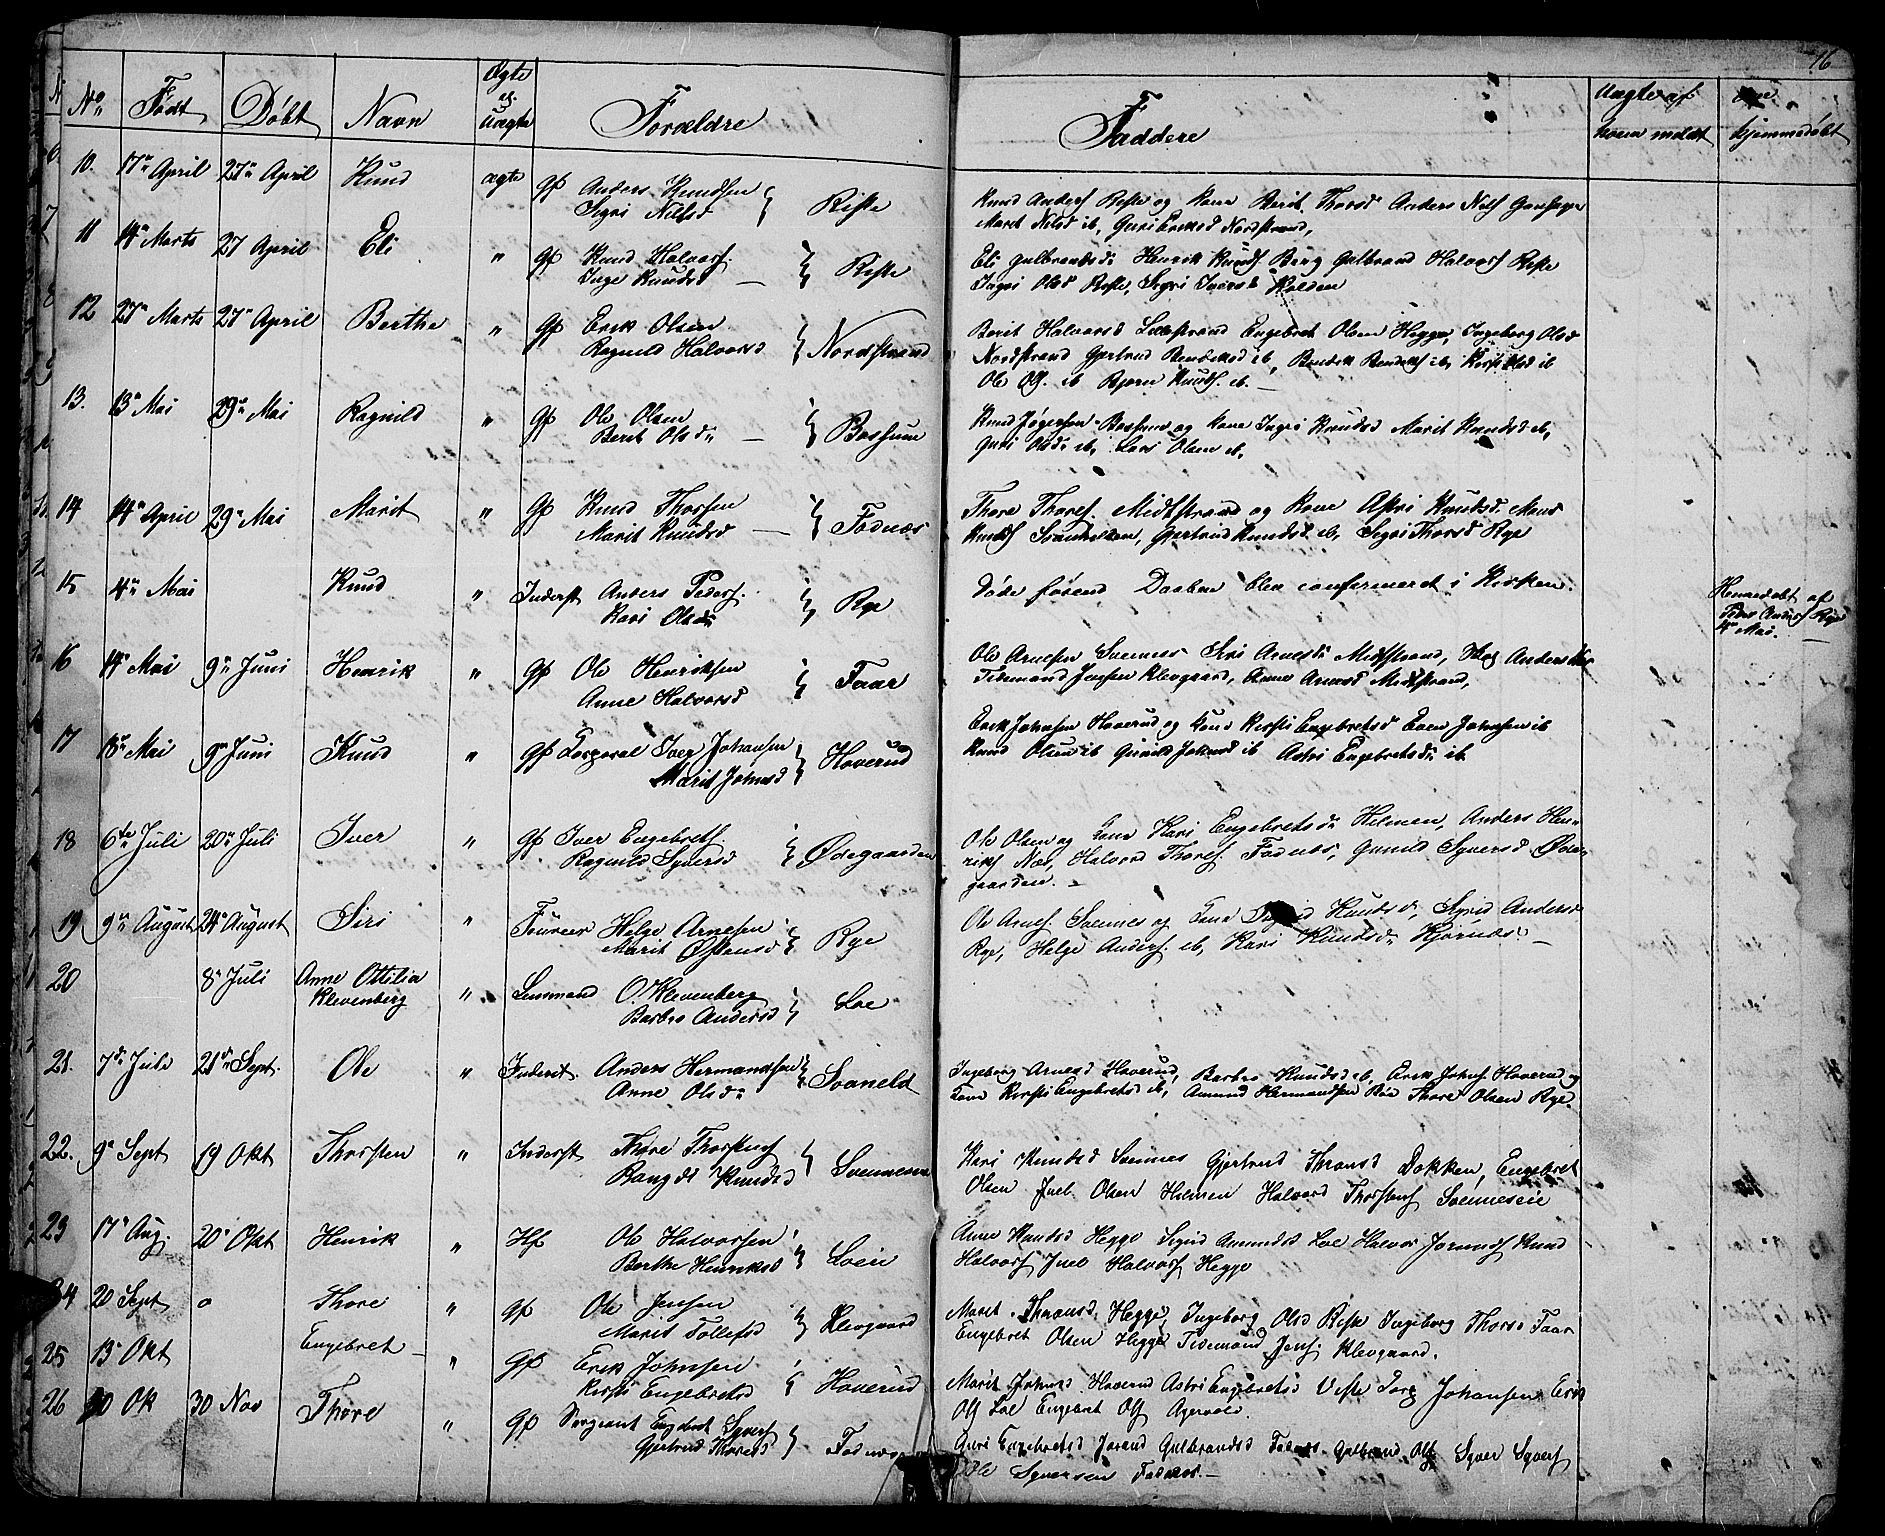 16
No Født Døbt Navn Ægte el. Uægte Forældre Faddere Uægte af hvem meldt hjemmedøbt
10. 17n April 27n April Knud ægte Gf Anders Knudsen Sigri Nilsd Riste
Knud Anders Riste og kone Berit Thorsd Anders Nils
Marit Nilsd ib, Guri Nordstrand,
11 14n Marts 27 April Eli " Gf Knud Halvors. Inge Knudsd Riste
Eli Gulbrandsd: Henrik Knuds Berg Gulbrand Halvors Riste
Ingri Olsd Riste, Sigri Iversd Holden
12 27n Marts 27n April Berthe " Gf Erik Olsen Ragnild Halvorsd Nordstrand
Berit Halvorsd Engebret Olsen Hegge, Ingeborg Olsd
Nordstrand Gjertrud ib, ib, ib
Ole Ols. ib Bjørn Knuds. ib.
13. 13n Mai 29n Mai Ragnild " Gf Ole Olsen Berit Olsd: Bossum
Knud Bossum og kone Ingri Knudsd Marit Knudsd ib,
Guri Olsd: ib, Lars Olsen ib,
14 14n April 29n Mai Marit " Gf Knud Thorsen Marit Knudsd Fodnæs
Thore Thores. Midtstrand og kone Knudsd.
Knuds Gjertrud Knudsd ib, Sigri Thorsd Rye
15 4n Mai Knud " Inderst Anders Peders. Kari Olsd: Rye
Døde førend Daaben blev confermeret i Kirken.
Hjemmedøbt af
Anders Rye
Mai.
16 14n Mai 9n Juni Henrik " Gf Ole Henriksen Anne Halvorsd Faar
Ole Arnesen Svennes Siri Arnesd: Midtstrand, Anders
Tidemand Jensen Klevgaard, Anne Arnesd Midtstrand,
17 18n Mai 9n Juni Knud " Gf Corporal Iver Johansen Marit Johnsd Hoverud
Erik Johnsen Hoverud og Kone Kirsti Engebretsd Even Johnsen ib
Knud Olsen ib Gunild Johnsd ib Astri Engebretsd: ib.
18 6te Juli 20n Juli Iver " Gf Iver Engebrets Ragnild Syversd Ødegaarden
Ole Olsen og Kone Kari Engebretsd: Helmen, Anders Hen-
riks Næs, Halvord Thores. Fodnæs, Gunild Syversd Øde-
gaarden. –
19 9n August 24n August Siri " Foureer Helge Arnesen Marit Østensd Rye
Ole Arnes. Svennes og Kone Knudsd, Sigrid Andersd
Rye, Helge Anders. ib, Kari Knudsd: –
20 8n Juli Anne Ottilia Klevenberg " Lensmand O. Klevenberg Barbro Andersd Loe
21. 7de Juli 21de Sept. Ole " Inderst. Anders Hermandsen Anne Olsd: Svaneld
Ingeborg Arnesd Hoverud, Barbro Knudsd ib, Erik Johns Hoverud og
Kone Kirsti Engebretsd ib, Amund Hermandsen Thore Olsen Rye.
22. 9n Sept 19 Okt Thorsten " Inderst Thore Thorstens Rangdi Knudsd
Kari Knudsd Svennes Gjertrud Thronsd Dokken, Engebret
Olsen Juel Olsen Helmen Halvord Thorstens Svenneseie
23 17n Aug. 20n Okt Henrik " Hf Ole Halvorsen Berthe Henriksd
Anne Knudsd Hegge Sigrid Amundsd Loe Halvor Knud
Halvors Juel Halvors Hegge
24 20 Sept Thore " Gf Ole Jensen Marit Tollefsd Klevgaard
Marit Thronsd. Hegge, Ingeborg Olsd Riste Ingeborg Thorsd Faar
Engebret Olsen Hegge Tidemand Jens. Klevgaard.
25 13n Okt Engebret " Gf Erik Johnsen Kirsti Engebretsd Hoverud
Marit Johnsd Hoverud Astri Engebretsd Johansen Erik
Ols Loe Engebret Ols
26 Ok 30 Nov Thore " Gf Sergeant Engebret Syvers Gjertrud Thoresd Fodnæs
Guri Engebretsd Jorand Gulbrandsd Fodnæs Gulbrand Ols Syver Syvers
Ole Syversen Fodnæs. –